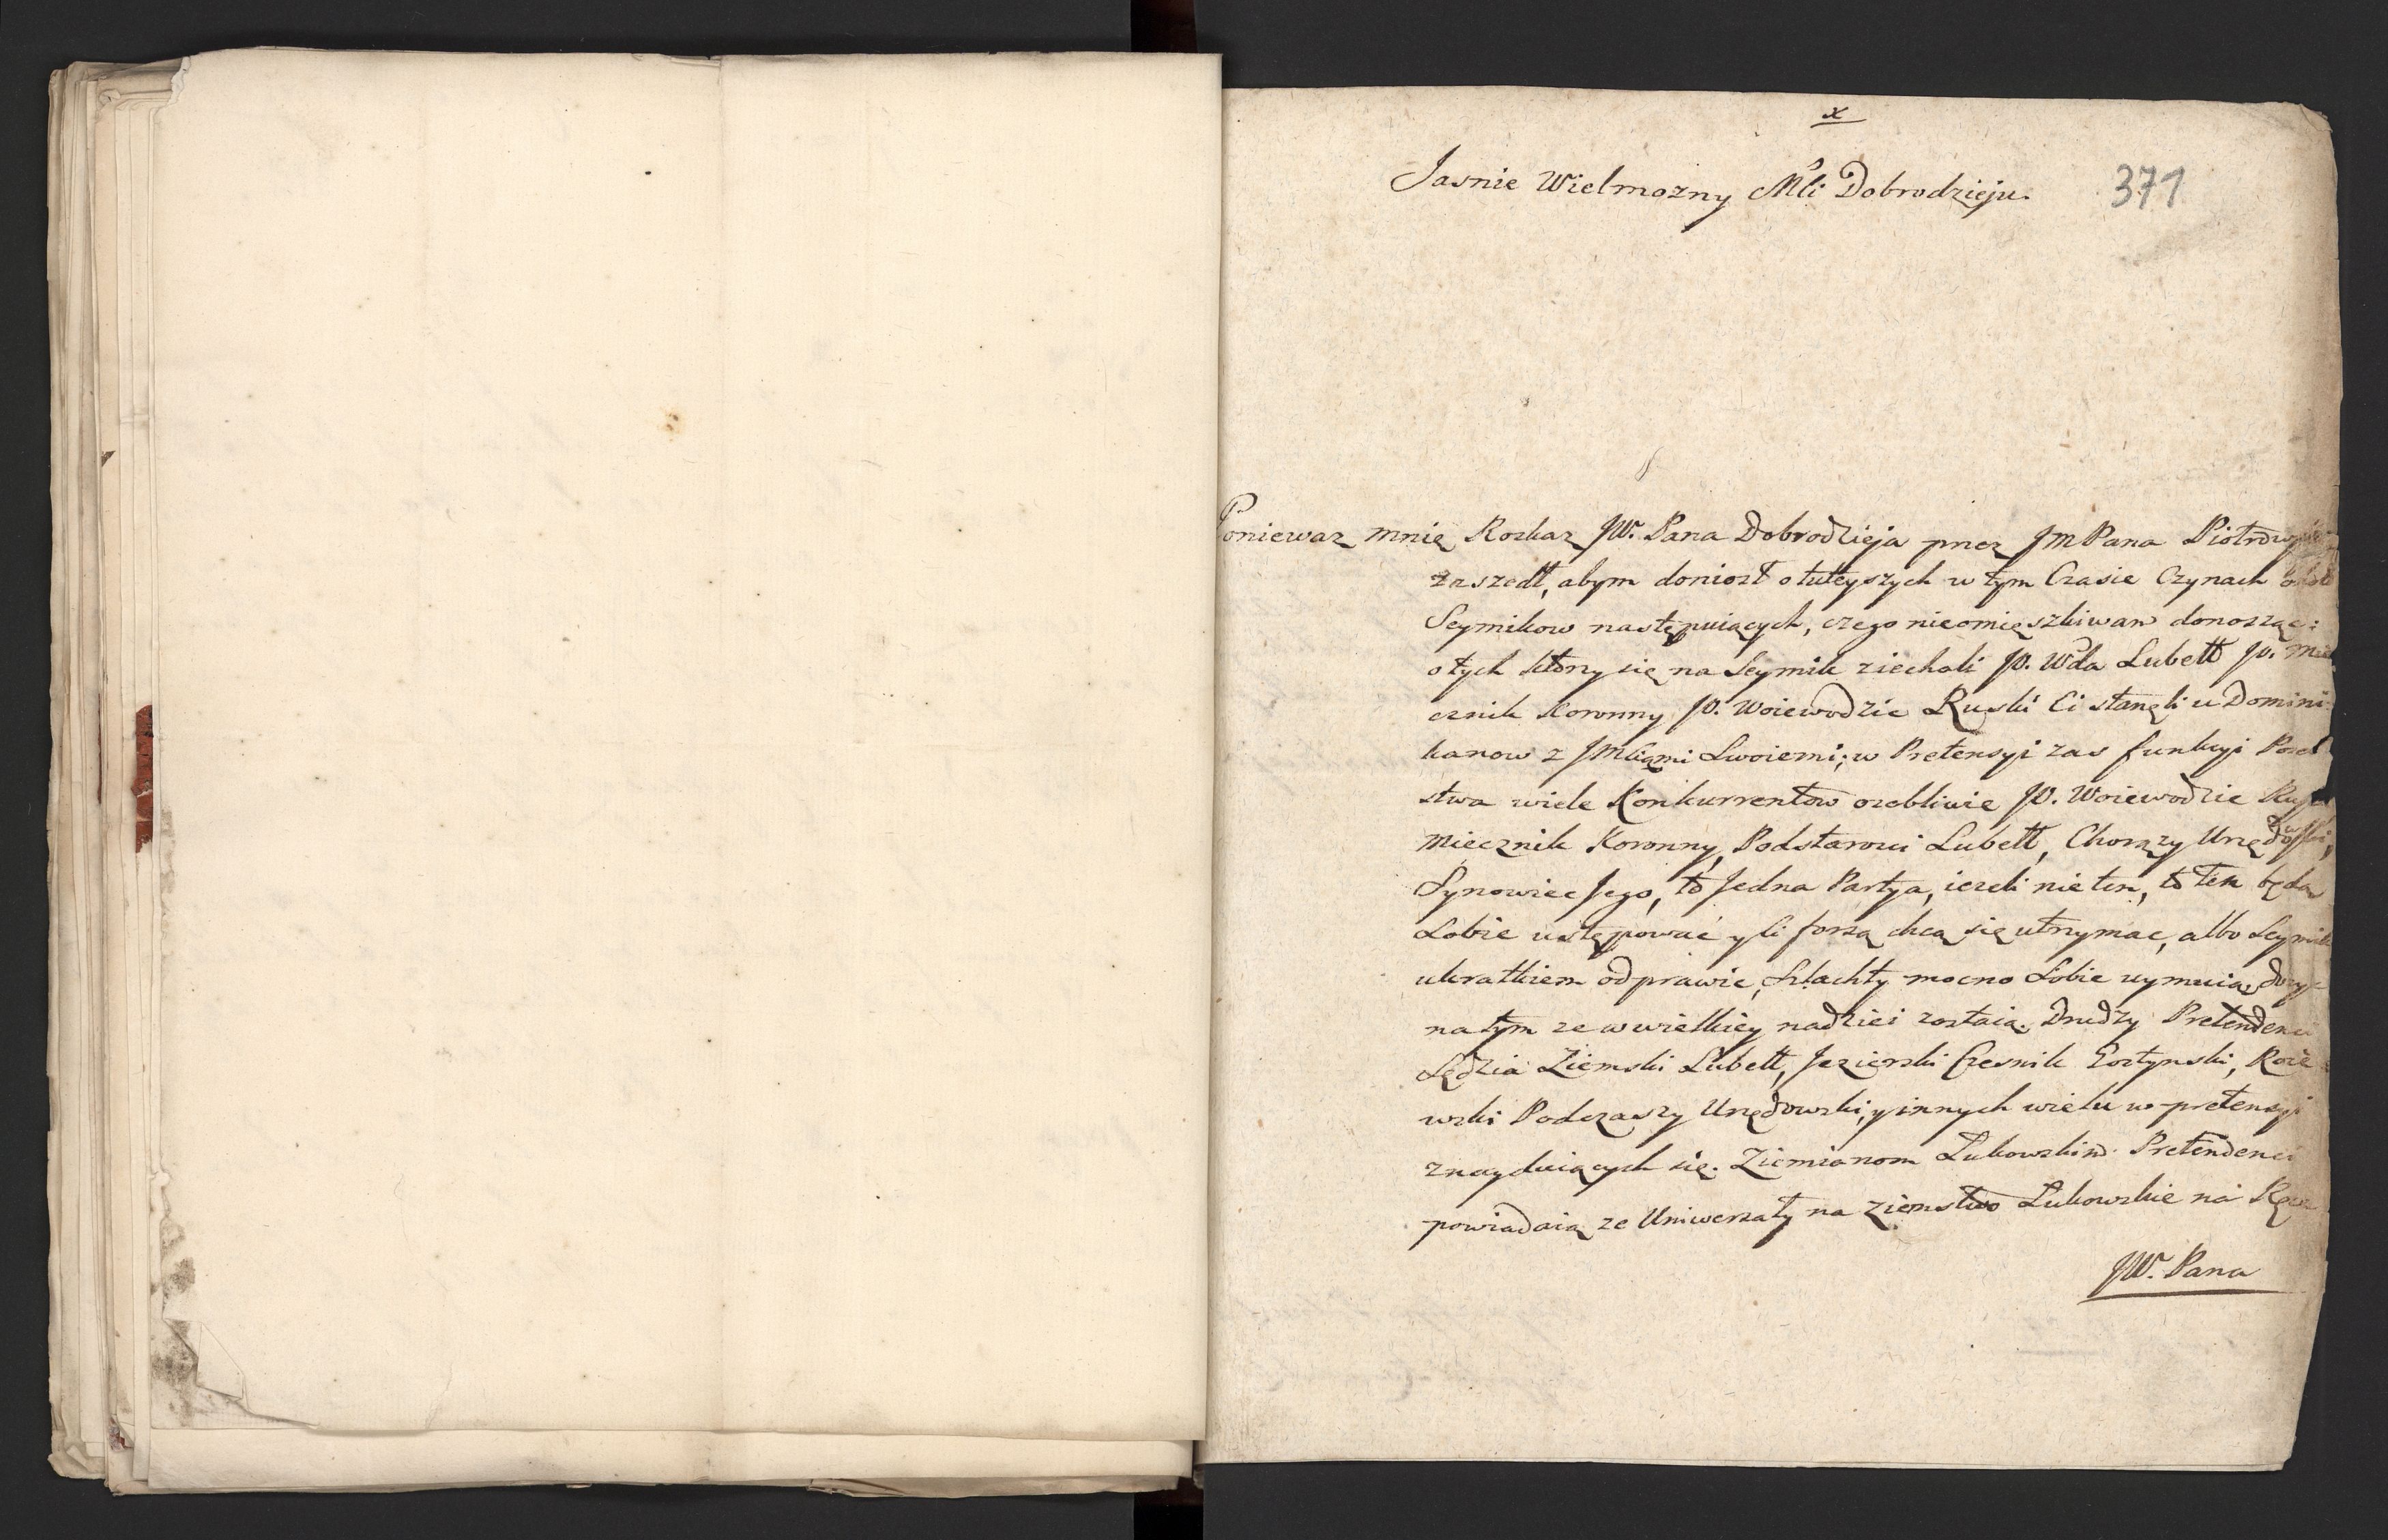 x
Jasnie Wielmozny Mći Dobrodzieju.
371
Poniewaz mnię Rozkaz JW. Pana Dobrodzieja przez JM Pana
zaszedł, abym doniosł o tuteyszych w tym Czasie Czynach
Seymikow następuiących, czego nieomięszkiwam donosząc:
o tych ktory się na Seymik ziechali JO. Wda Lubell JO. Mie
cznik Koronny JO. Woiewodzic Ruski Ci stanęli u Domini:
kanow z JMściami Swoiemi; w Pretensyi zas funkcyi Posel
stwa wiele Konkurrentow osobliwie JO. Woiewodzic Ruski
Miecznik Koronny, Podstarosci Lubell, Chorązy Urzędowski,
Synowiec Jego, to Jedna Partya, iezeli nie ten, to ten będą
Sobie ustępować y li forsą chcą się utrzymac, albo Seymik
ukratkiem odprawic, Szlachty mocno Sobie uymuią,
na tym ze w wielkiey nadziei zostaią. Drudzy Pretendenci
Sędzia Ziemski Lubell, Jezierski Czesnik Gostynski,
wski Podczaszy Urzędowski, y innych wielu w pretensyi
znayduiących się. Ziemianom Łukowskim Pretendenci
powiadaią ze Uniwersały na Ziemstwo Łukowskie na Ręce
JW. Pana